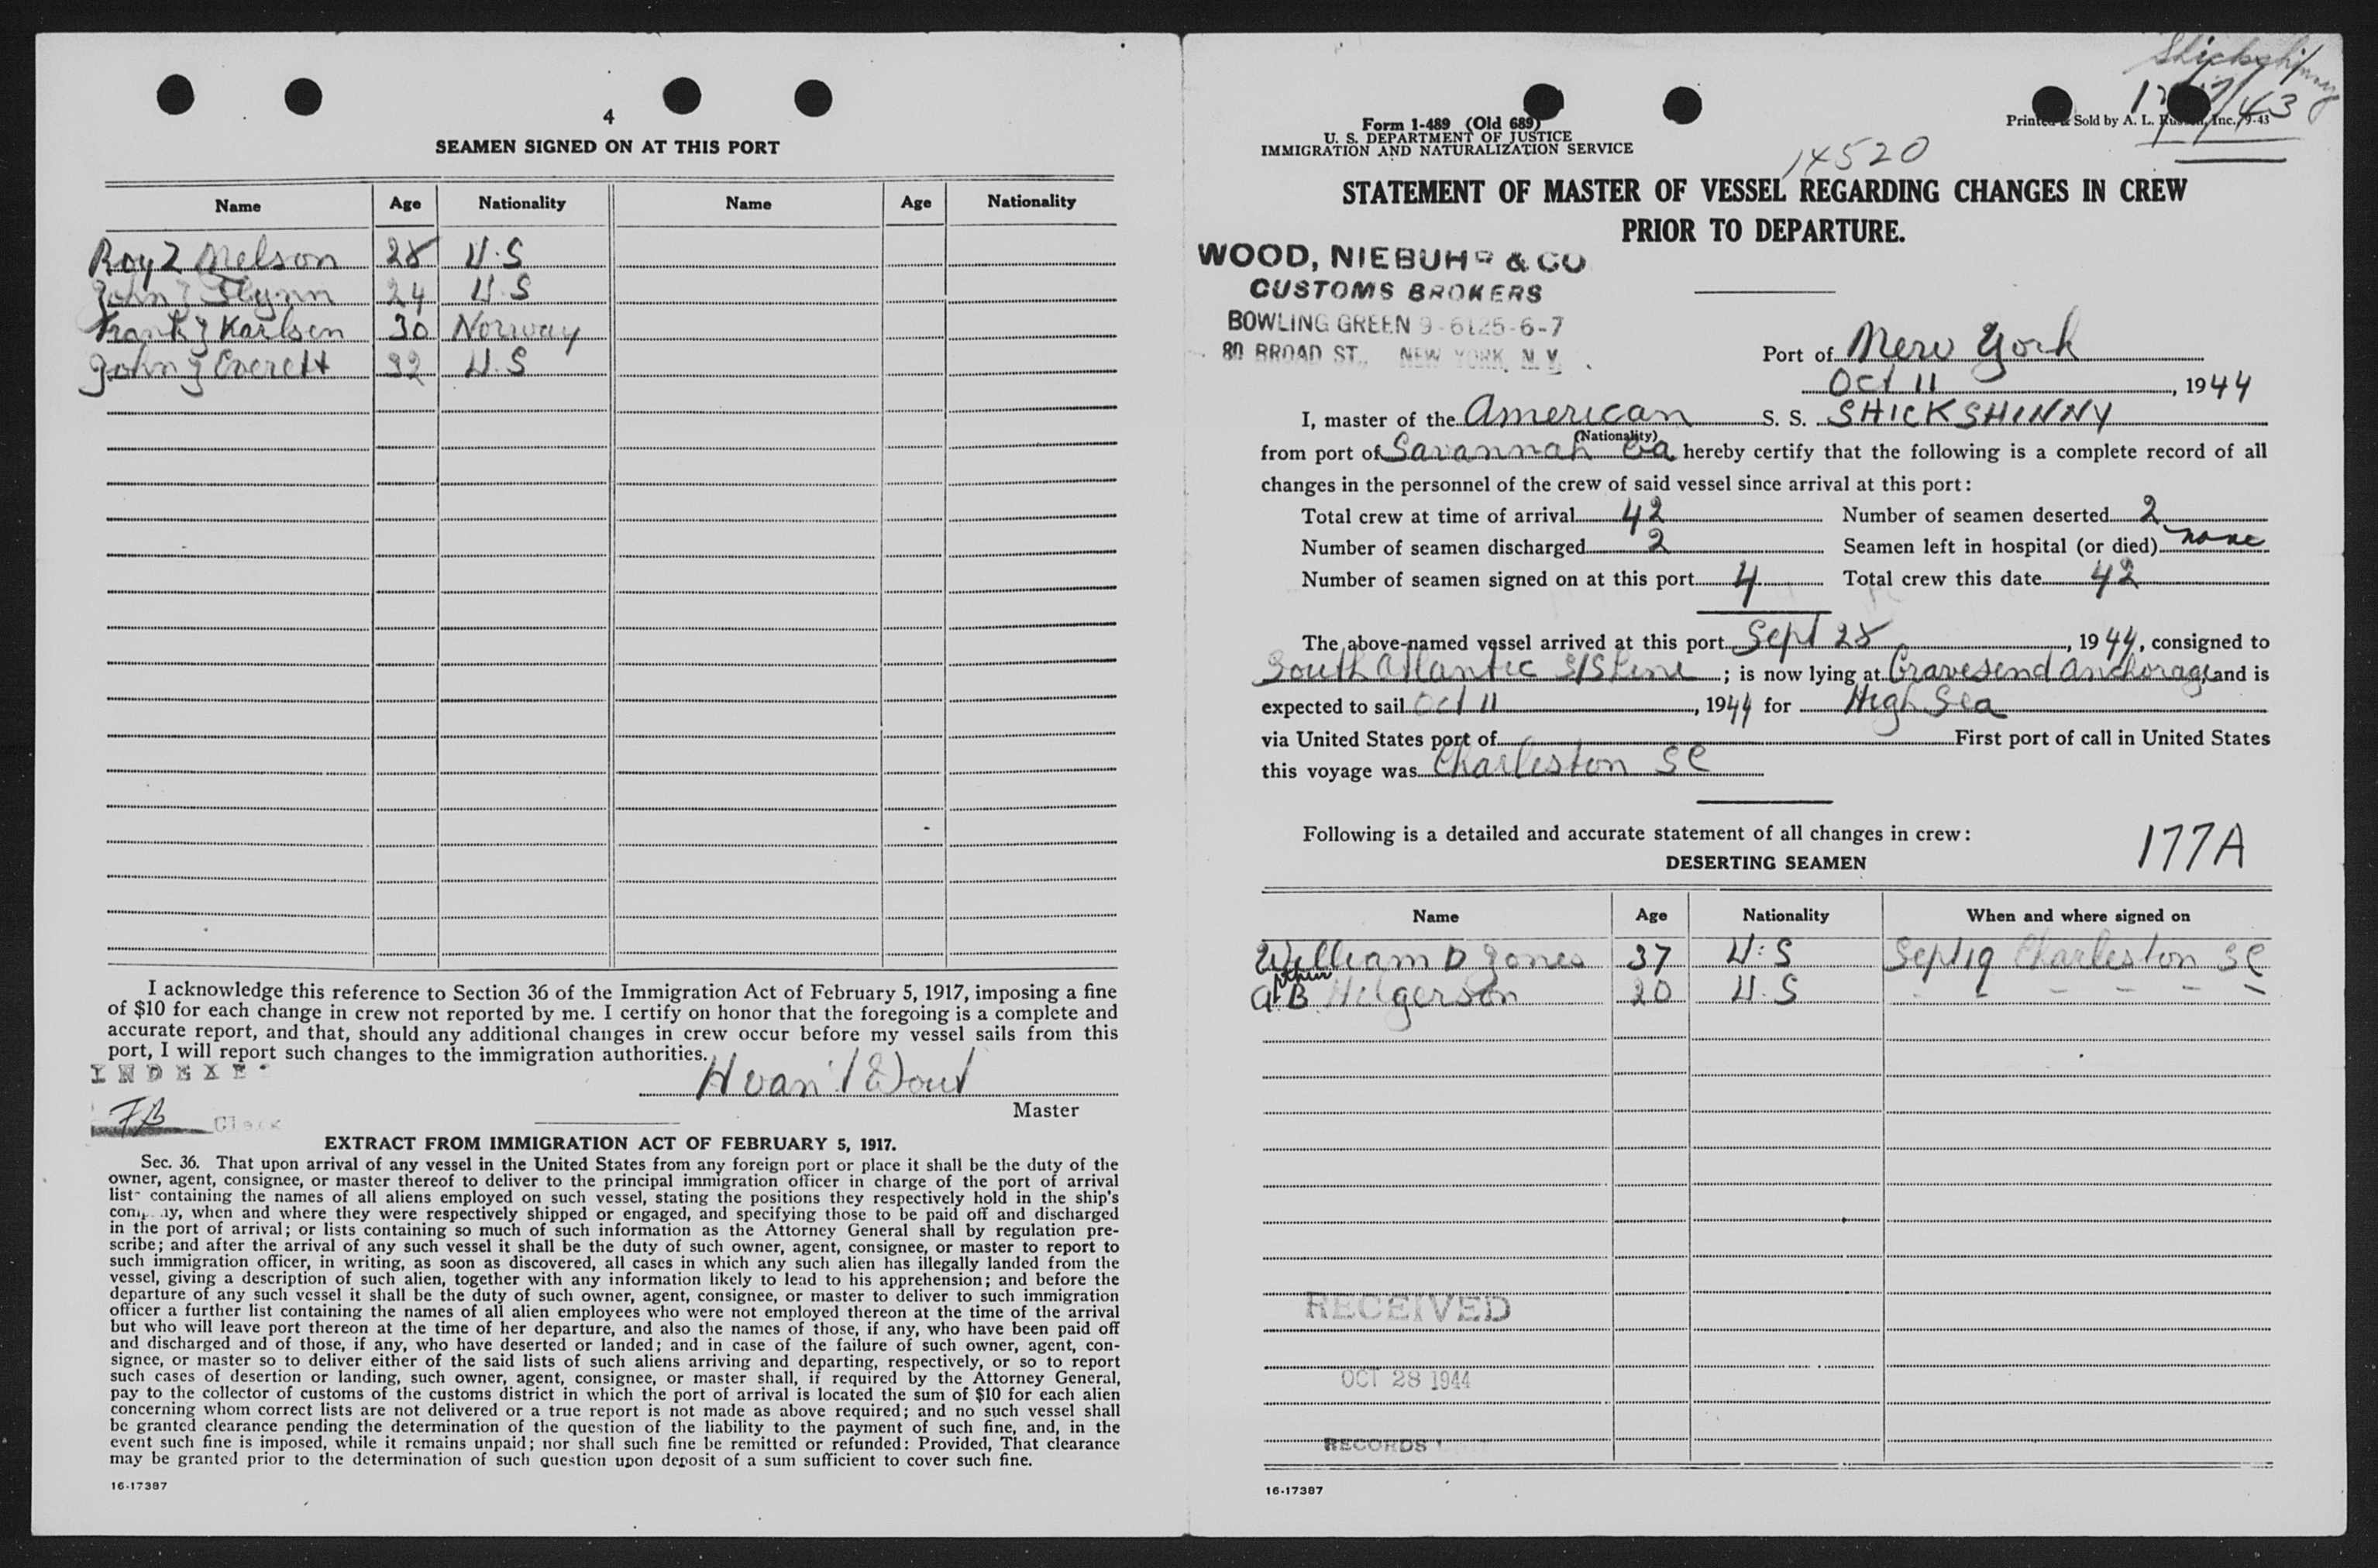 4
SEAMEN SIGNED ON AT THIS PORT
Name Age Nationality Name Age Nationality
Roy Z Nelson 28 U.S
John J Flynn 24 U.S
Frank J Karlsen 30 Norway
John J Everett 32 U.S
I acknowledge this reference to Section 36 of the Immigration Act of February 5, 1917, imposing a fine
of $10 for each change in crew not reported by me. I certify on honor that the foregoing is a complete and
accurate report, and that, should any additional changes in crew occur before my vessel sails from this
port, I will report such changes to the immigration authorities.
INDEXE
Master
FB Clerk
EXTRACT FROM IMMIGRATION ACT OF FEBRUARY 5, 1917.
Sec. 36. That upon arrival of any vessel in the United States from any foreign port or place it shall be the duty of the
owner, agent, consignee, or master thereof to deliver to the principal immigration officer in charge of the port of arrival
lists containing the names of all aliens employed on such vessel, stating the positions they respectively hold in the ship's
company, when and where they were respectively shipped or engaged, and specifying those to be paid off and discharged
in the port of arrival; or lists containing so much of such information as the Attorney General shall by regulation pre-
scribe; and after the arrival of any such vessel it shall be the duty of such owner, agent, consignee, or master to report to
such immigration officer, in writing, as soon as discovered, all cases in which any such alien has illegally landed from the
vessel, giving a description of such alien, together with any information likely to lead to his apprehension; and before the
departure of any such vessel it shall be the duty of such owner, agent, consignee, or master to deliver to such immigration
officer a further list containing the names of all alien employees who were not employed thereon at the time of the arrival
but who will leave port thereon at the time of her departure, and also the names of those, if any, who have been paid off
and discharged and of those, if any, who have deserted or landed; and in case of the failure of such owner, agent, con-
signee, or master so to deliver either of the said lists of such aliens arriving and departing, respectively, or so to report
such cases of desertion or landing, such owner, agent, consignee, or master shall, if required by the Attorney General,
pay to the collector of customs of the customs district in which the port of arrival is located the sum of $10 for each alien
concerning whom correct lists are not delivered or a true report is not made as above required; and no such vessel shall
be granted clearance pending the determination of the question of the liability to the payment of such fine, and, in the
event such fine is imposed, while it remains unpaid; nor shall such fine be remitted or refunded: Provided, That clearance
may be granted prior to the determination of such question upon deposit of a sum sufficient to cover such fine.
16-17387
Shickshinny
Form 1-489 (Old 689)
U. S. DEPARTMENT OF JUSTICE
IMMIGRATION AND NATURALIZATION SERVICE
Printed & Sold by A. L. Russell, Inc., 9-43
14520
STATEMENT OF MASTER OF VESSEL REGARDING CHANGES IN CREW
PRIOR TO DEPARTURE.
WOOD, NIEBUHR & CO
CUSTOMS BROKERS
BOWLING GREEN 9-6125-6-7
80 BROAD ST., NEW YORK, N.Y.
Port of New York
Oct 11, 1944
I, master of the American S. S. SHICKSHINNY
(Nationality)
from port of Savannah Ga hereby certify that the following is a complete record of all
changes in the personnel of the crew of said vessel since arrival at this port:
Total crew at time of arrival 42 Number of seamen deserted 2
Number of seamen discharged 2 Seamen left in hospital (or died) none
Number of seamen signed on at this port 4 Total crew this date 42
The above-named vessel arrived at this port Sept 28, 1944, consigned to
South Atlantic S/S Line; is now lying at Gravesend Anchorage and is
expected to sail Oct 11, 1944 for High Sea
via United States port of First port of call in United States
this voyage was Charleston SC
Following is a detailed and accurate statement of all changes in crew:
177A
DESERTING SEAMEN
Name Age Nationality When and where signed on
William D Jones 37 U.S Sept 19 Charleston SC
B Hilgerson 20 U.S - - - - - -
RECEIVED
OCT 28 1944
RECORDS
16-17387